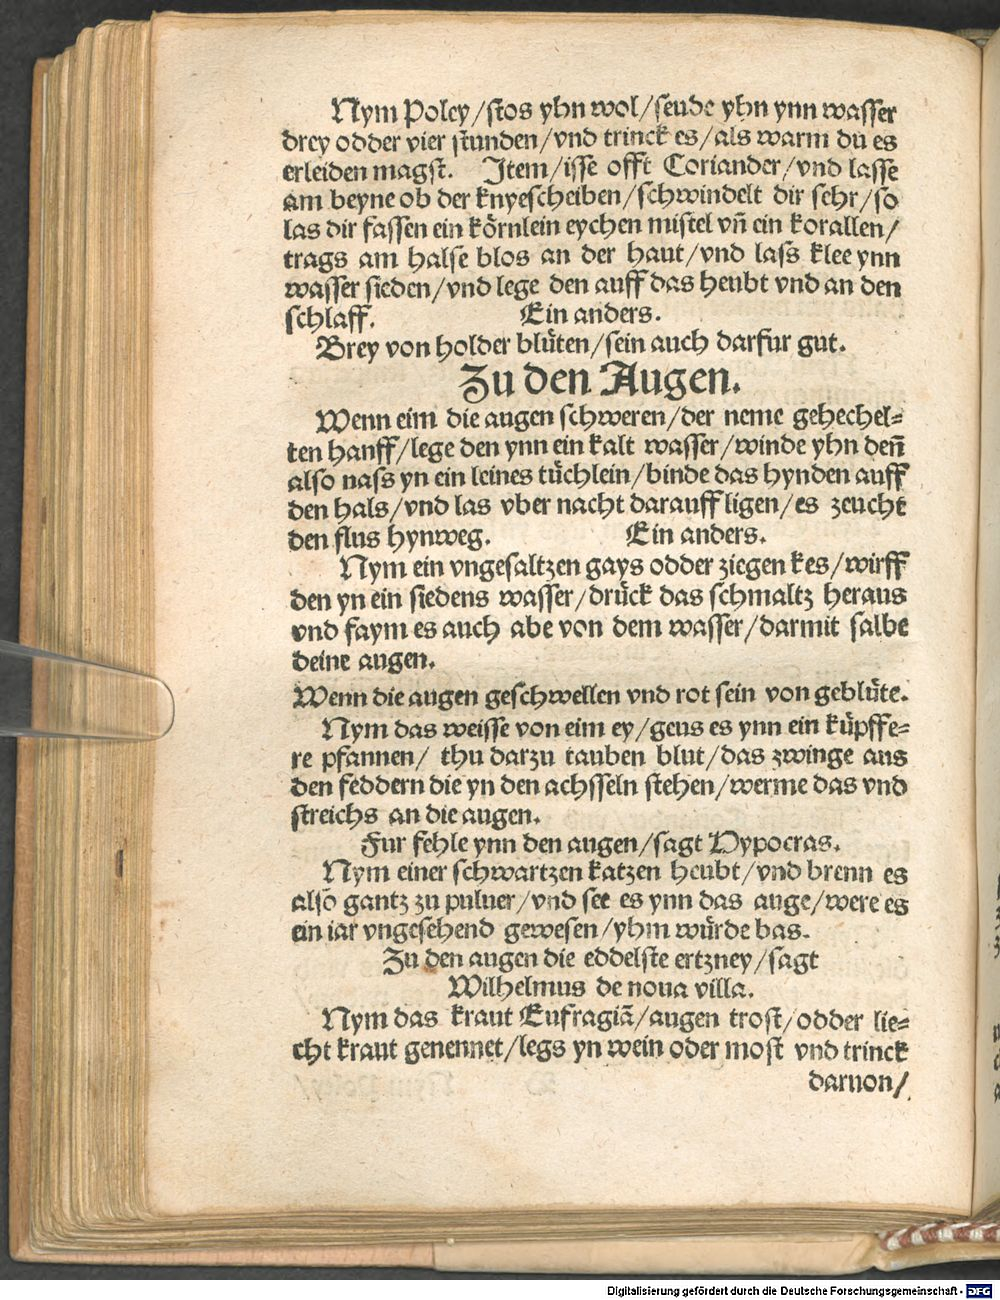 Nym Poley/stos yhn wol/seude yhn ynn wasser
drey odder vier stunden/vnd trinck es/als warm du es
erleiden magst. Item/isse offt Coriander/vnd lasse
am beyne ob der knyescheiben/schwindelt dir sehr/so
las dir fassen ein körnlein eychen mistel vñ ein korallen/
trags am halse blos an der haut/vnd lass klee ynn
wasser sieden/vnd lege den auff das heubt vnd an den
schlaff. Ein anders.
Brey von holder blüten/sein auch darfur gut.
Zu den Augen.
Wenn eim die augen schweren/der neme gehechel=
ten hanff/lege den ynn ein kalt wasser/winde yhn deñ
also nass yn ein leines tüchlein/binde das hynden auff
den hals/vnd las vber nacht darauff ligen/es zeucht
den flus hynweg. Ein anders.
Nym ein vngesaltzen gays odder ziegen kes/wirff
den yn ein siedens wasser/drück das schmaltz heraus
vnd faym es auch abe von dem wasser/darmit salbe
deine augen.
Wenn die augen geschwellen vnd rot sein von geblüte.
Nym das weisse von eim ey/geus es ynn ein küpffe=
re pfannen/ thu darzu tauben blut/das zwinge aus
den feddern die yn den achsseln stehen/werme das vnd
streichs an die augen.
Fur fehle ynn den augen/sagt Hypocras.
Nym einer schwartzen katzen heubt/vnd brenn es
also gantz zu puluer/vnd see es ynn das auge/were es
ein iar vngesehend gewesen/yhm würde bas.
Zu den augen die eddelste ertzney/sagt
Wilhelmus de noua villa.
Nym das kraut Eufragiā/augen trost/odder lie=
cht kraut genennet/legs yn wein oder most vnd trinck
darnon/
Digitalisierung gefördert durch die Deutsche Forschungsgemeinschaft - DFG